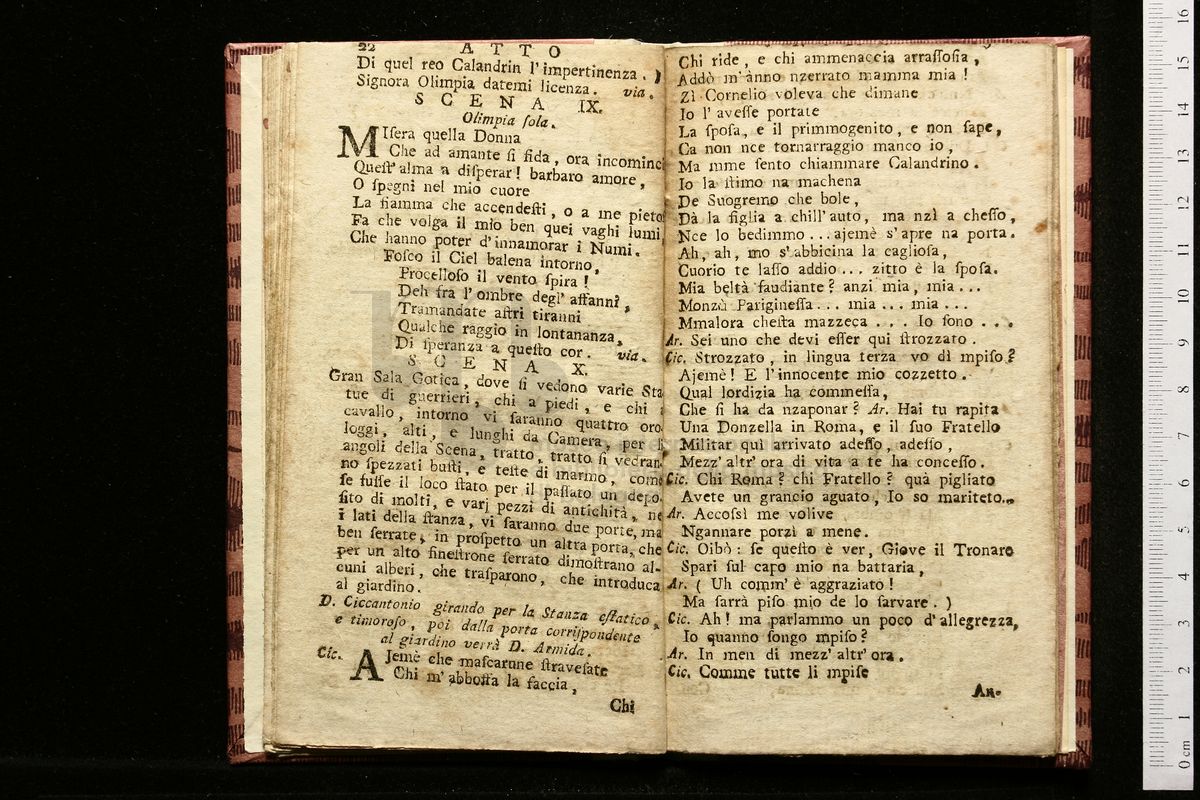 22 ATTO
Di quel reo Calandrin l'impertinenza.
Signora Olimpia datemi licenza. via.
SCENA IX.
Olimpia ſola.
MIſera quella Donna
Che ad amante ſi fida, ora incominc
Queſt'alma a diſperar! barbaro amore,
O ſpegni nel mio cuore
La fiamma che accendeſti, o a me pieto
Fa che volga il mio ben quei vaghi lumi
Che hanno poter d'innamorar i Numi.
Foſco il Ciel balena intorno,
Procelloſo il vento ſpira!
Deh fra l'ombre degl' affanni,
Tramandate aſtri tiranni
Qualche raggio in lontananza,
Di ſperanza a queſto cor. via.
SCENA X.
Gran Sala Gotica, dove ſi vedono varie Sta
tue di guerrieri, chi a piedi, e chi a
cavallo, intorno vi ſaranno quattro oro
loggi, alti, e lunghi da Camera, per li
angoli della Scena, tratto, tratto ſi vedran
no ſpezzati buſti, e teſte di marmo, come
ſe fuſſe il loco ſtato per il paſſato un depo
ſito di molti, e varj pezzi di antichità, ne
i lati della ſtanza, vi ſaranno due porte, ma
ben ſerrate, in proſpetto un altra porta, che
per un alto fineſtrone ſerrato dimoſtrano al-
cuni alberi, che traſparono, che introduca
al giardino.
D. Ciccantonio girando per la Stanza eſtatico,
e timoroſo, poi dalla porta corriſpondente
al giardino verrà D. Armida.
Cic. AJemè che maſcarune ſtraveſate
Chi m'abboſſa la faccia,
Chi
Chi ride, e chi ammenaccia arraſſoſia,
Addò m'ànno nzerrato mamma mia!
Zì Cornelio voleva che dimane
Io l'aveſſe portate
La ſpoſa, e il primmogenito, e non ſape,
Ca non nce tornarraggio manco io,
Ma mme ſento chiammare Calandrino.
Io la ſtimo na machena
De Suogremo che bole,
Dà la figlia a chill'auto, ma nzì a cheſſo,
Nce lo bedimmo...ajemè s'apre na porta.
Ah, ah, mo s'abbicina la caglioſa,
Cuorio te laſſo addio... zitto è la ſpoſa.
Mia beltà faudiante? anzi mia, mia...
Monzù Parigineſſa... mia... mia...
Mmalora cheſta mazzeca... Io ſono...
Ar. Sei uno che devi eſſer qui ſtrozzato.
Cic. Strozzato, in lingua terza vo dì mpiſo?
Ajemè! E l'innocente mio cozzetto.
Qual lordizia ha commeſſa,
Che ſi ha da nzaponar? Ar. Hai tu rapita
Una Donzella in Roma, e il ſuo Fratello
Militar quì arrivato adeſſo, adeſſo,
Mezz'altr'ora di vita a te ha conceſſo.
Cic. Chi Roma? chi Fratello? quà pigliato
Avete un grancio aguato, Io so mariteto...
Ar. Accoſsì me volive
Ngannare porzì a mene.
Cic. Oibò: ſe queſto è ver, Giove il Tronaro
Spari ſul capo mio na battaria,
Ar. (Uh comm'è aggraziato!
Ma ſarrà piſo mio de lo ſarvare.)
Cic. Ah! ma parlammo un poco d'allegrezza,
Io quanno ſongo mpiſo?
Ar. In men di mezz'altr'ora.
Cic. Comme tutte li mpiſe
Ar-